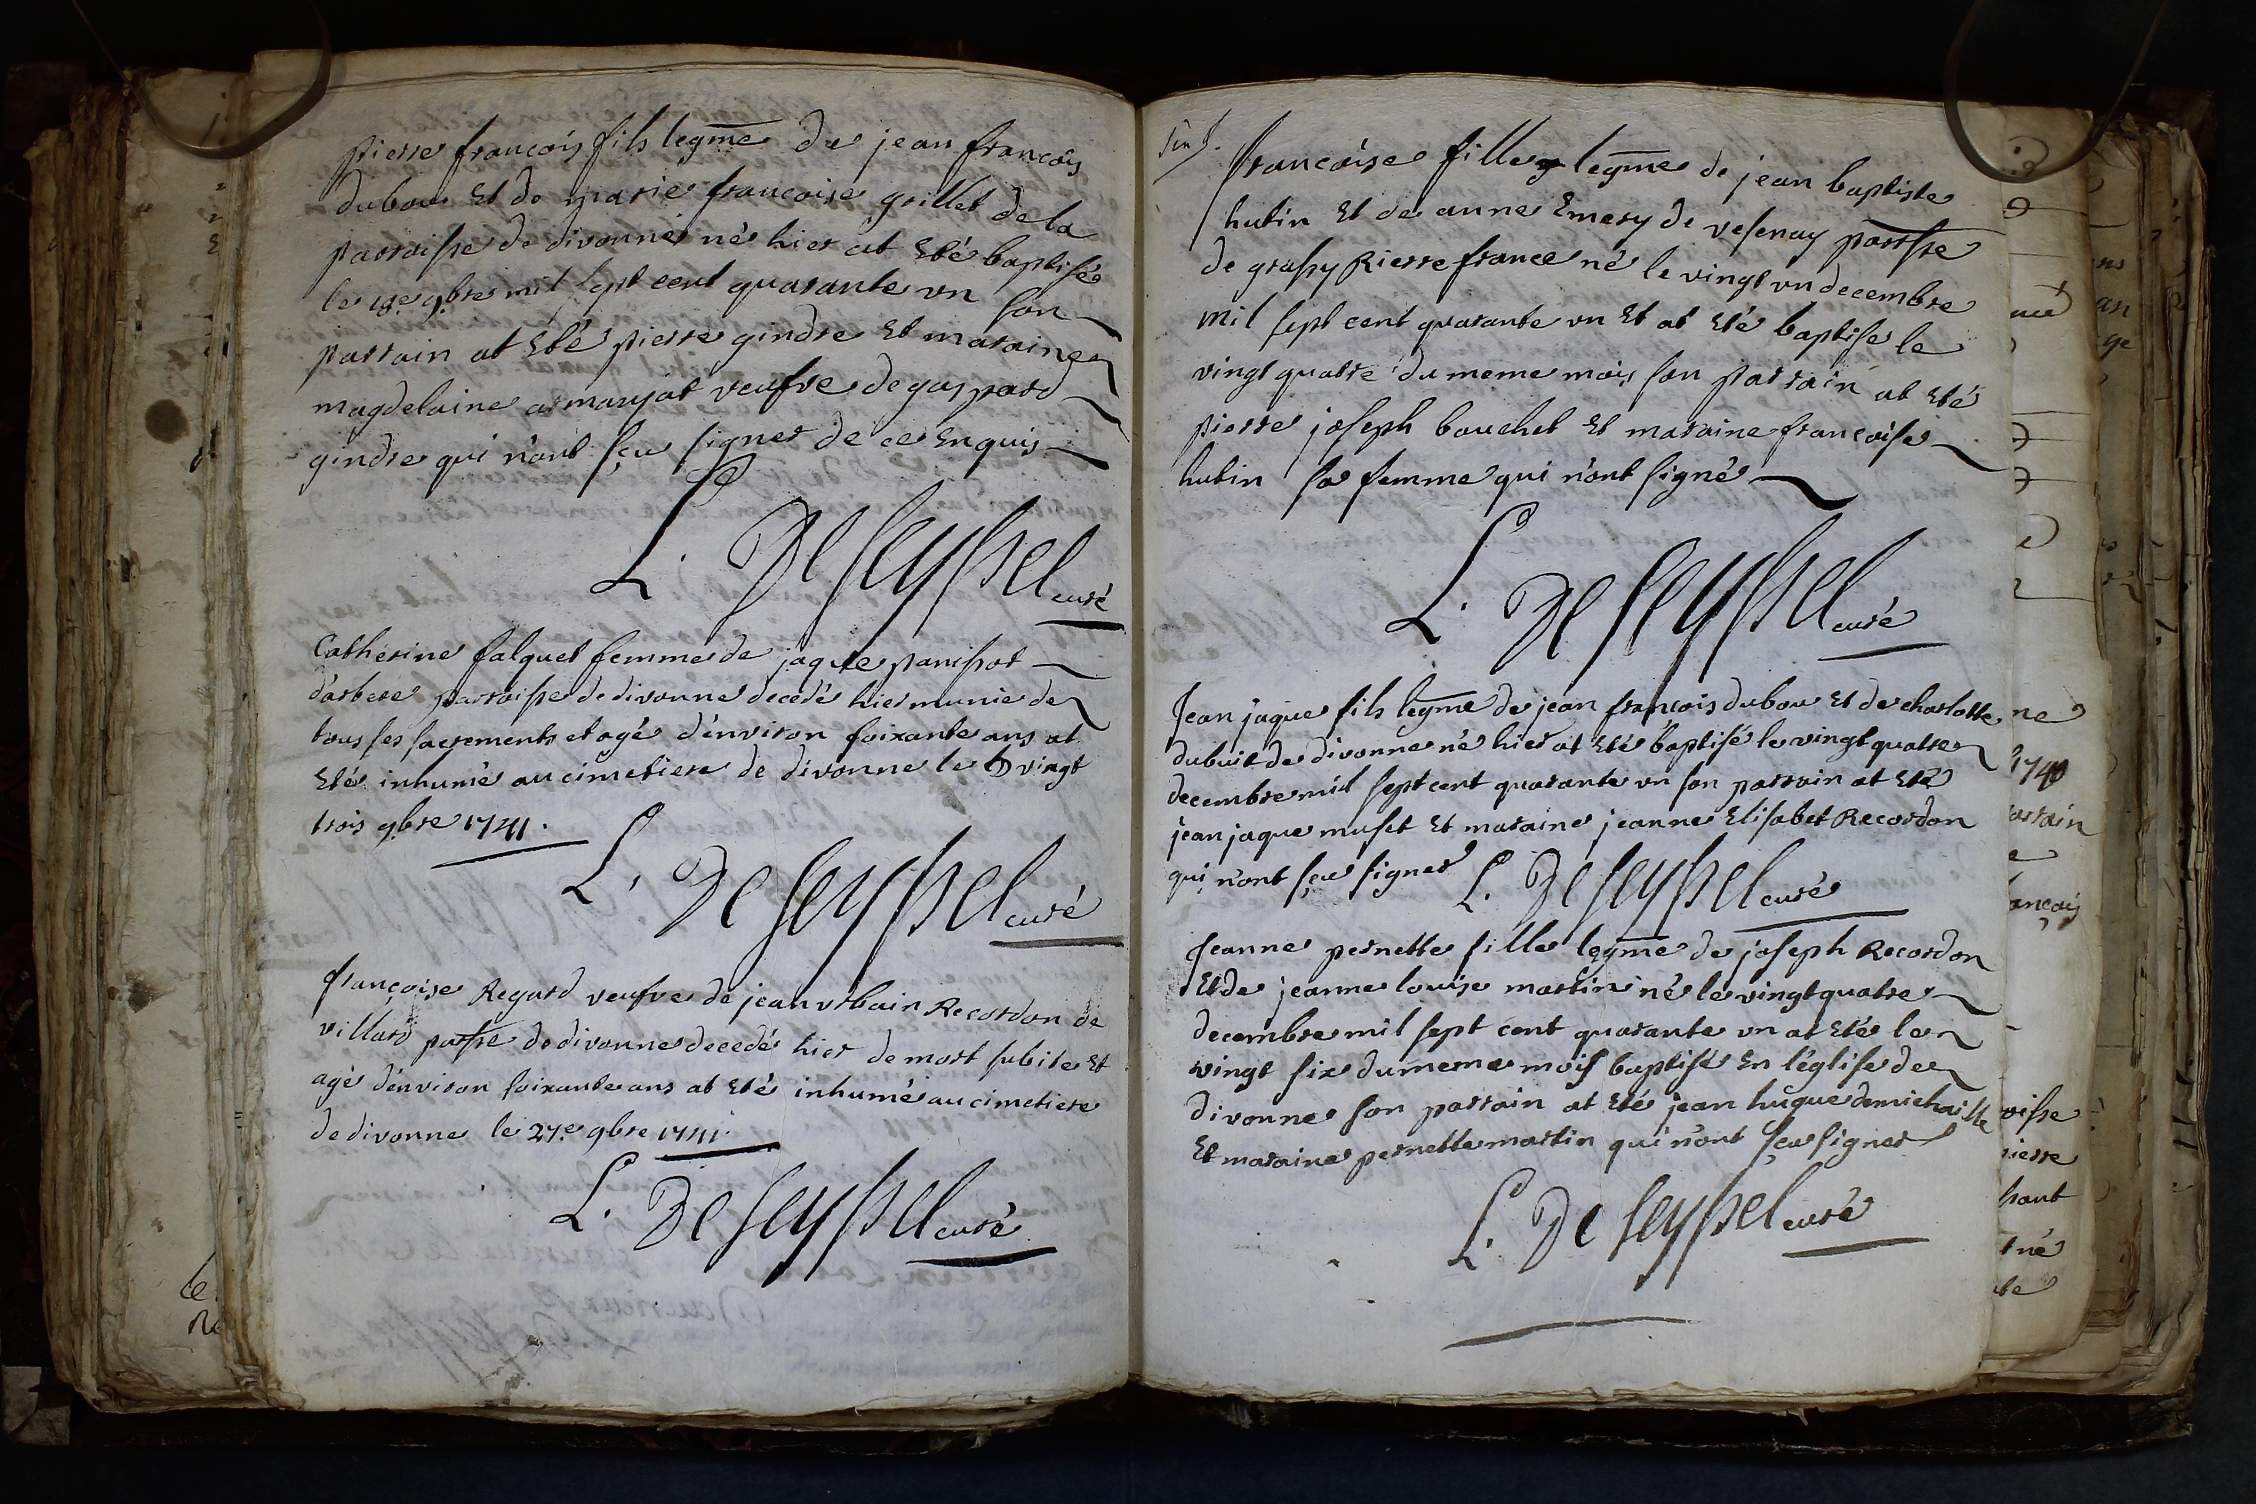 pierre françois fils legme de jean françois
dubou Et de marie françoise grillet de la
parroisse de divonne né hier at Eté baptisé
le 18e 9bre mil sept cent quarante un son
parrain at Eté pierre gindre Et maraine
magdelaine armanjat veufve de gaspard
gindre qui n'ont sçu signer de ce Enquis
L. De Seyssel curé
Catherine falquet femme de jaque panissot
d'arbere parroisse de divonne decedé hier munie de
tous ses sacrements et agé d'environ soixante ans at
Eté inhumé au cimetiere de divonne le vingt
trois 9bre 1741.
L. De Seyssel curé
françoise Regard veufve de jean urbain Recordon de
villard parsse de divonne decedé hier de mort subite Et
agé d'environ soixante ans at Eté inhumé au cimetiere
de divonne le 27e 9bre 1741.
L. De Seyssel curé
françoise fille legme de jean baptiste
hutin Et de anne Emery de vesenay parrsse
de grassy Rierre france né le vingt un decembre
mil sept cent quarante un Et at Eté baptise le
vingt quatre du meme mois son parrain at Eté
pierre joseph bouchet Et maraine françoise
hutin sa femme qui n'ont signé
L. De Seyssel curé
Jean jaque fils legme de jean françois dubou Et de charlotte
dubuit de divonne né hier at Eté baptisé le vingt quatre
decembre mil sept cent quarante un son parrain at Eté
jean jaque muset Et maraine jeanne Elisabet Recordon
qui n'ont sçu signer L. De Seyssel curé
Jeanne pernette fille legme de joseph Recordon
Et de jeanne louise martin né le vingt quatre
decembre mil sept cent quarante un at Eté le
vingt six du meme mois baptisé En l'église de
divonne son parrain at Eté jean huque demichaille
Et maraine pernette martin qui n'ont sçu signer
L. De Seyssel curé